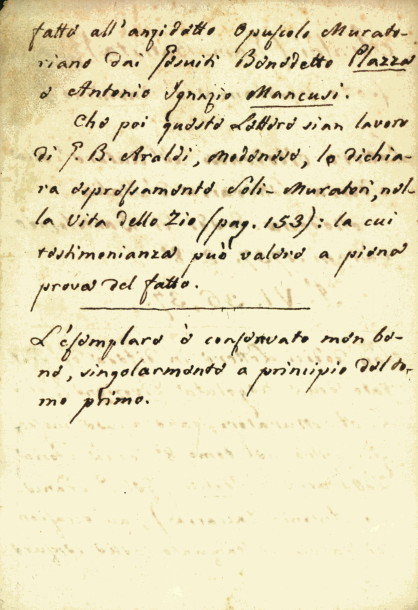 fatta all'anzidetto Opuscolo Murato-
riano dai Gesuiti Benedetto Plazza
e Antonio Ignazio Mancusi.
Che poi queste Lettere sian lavoro
di G. B. Araldi, Modenese, lo dichia-
ra espressamente Soli-Muratori, nel-
la Vita dello Zio (pag. 153): la cui
testimonianza può valere a piena
prova del fatto.
L'esemplare è conservato men be-
ne, singolarmente a principio del to-
mo primo.